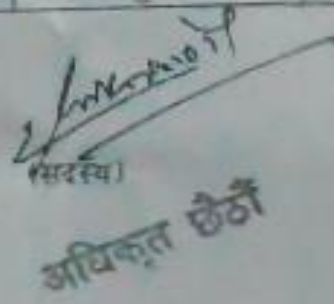 (सदस्य)
अधिकृत छैठौं